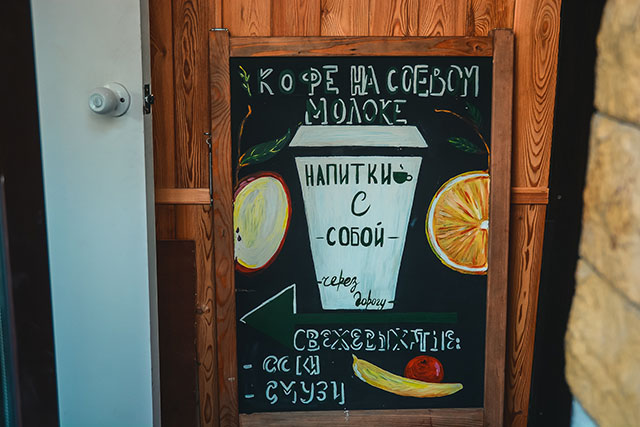 КОФЕ НА СОЕВОМ
МОЛОКЕ
НАПИТКИ
С
- СОБОЙ -
- через
дорогу -
СВЕЖЕВЫЖАТЫЕ:
- СОКИ
- СМУЗИ